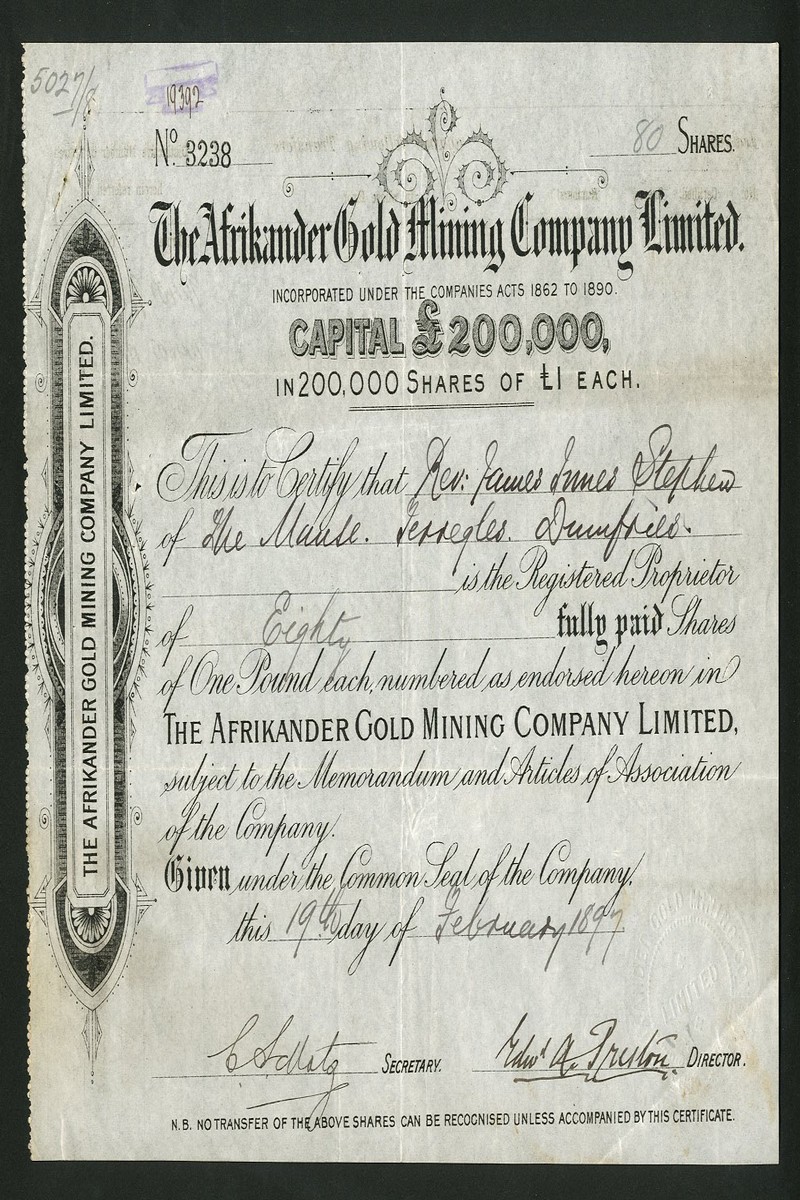 5027/8
19392
No. 3238
80 SHARES.
The Afrikander Gold Mining Company Limited.
INCORPORATED UNDER THE COMPANIES ACTS 1862 TO 1890.
CAPITAL £200,000,
IN 200,000 SHARES OF £1 EACH.
This is to Certify that Rev: James Innes Stephen
of The Manse. Terregles. Dumfries.
is the Registered Proprietor
of Eighty fully paid Shares
of One Pound each, numbered as endorsed hereon in
THE AFRIKANDER GOLD MINING COMPANY LIMITED,
subject to the Memorandum and Articles of Association
of the Company.
Given under the Common Seal of the Company,
this 19th day of February 1897
SECRETARY.
Edwd A. Preston. DIRECTOR.
N.B. NO TRANSFER OF THE ABOVE SHARES CAN BE RECOGNISED UNLESS ACCOMPANIED BY THIS CERTIFICATE.
THE AFRIKANDER GOLD MINING COMPANY LIMITED.